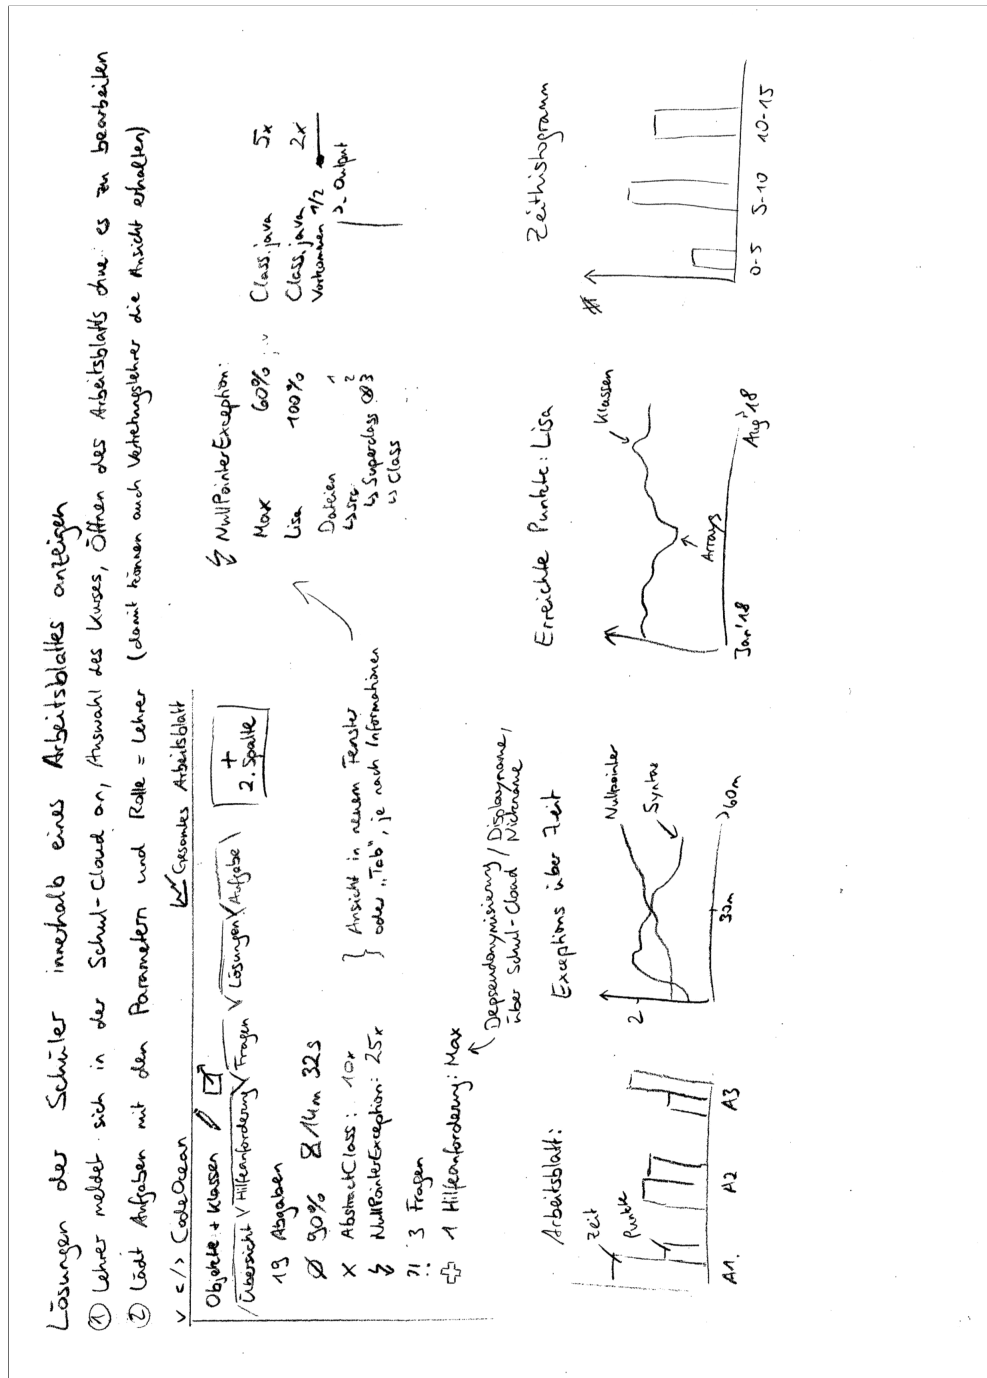 Lösungen der Schüler innerhalb eines Arbeitsblattes anzeigen
① Lehrer meldet sich in der Schul-Cloud an, Auswahl des Kurses, Öffnen des Arbeitsblatts ohne es zu bearbeiten
② Lädt Aufgaben mit den Parametern und Rolle = Lehrer (damit können auch Vertretungslehrer die Ansicht erhalten)
v </> CodeOcean
Gesamtes Arbeitsblatt
Objekte + Klassen
Übersicht \/ Hilfeanforderung \/ Fragen \/ Lösungen \/ Aufgabe \
+
2. Spalte
19 Abgaben
Ø 90% 14m 32s
x AbstractClass: 10x
NullPointerException: 25x
} Ansicht in neuem Fenster
oder „Tab", je nach Informationen
?! 3 Fragen
1 Hilfeanforderung: Max
Depseudonymisierung / Displayname,
über Schul-Cloud / Nickname
NullPointerException:
Max 60% Class.java 5x
Lisa 100% Class.java 2x
Vorkommen 1/2
>_ Output
Dateien
↳ src
↳ Superclass
↳ Class
1
2
3
Arbeitsblatt:
Zeit
Punkte
A1. A2 A3
Exceptions über Zeit
Nullpointer
Syntax
2
30m >60m
Erreichte Punkte: Lisa
Klassen
Arrays
Jan'18 Aug'18
Zeithistogramm
#
0-5 5-10 10-15